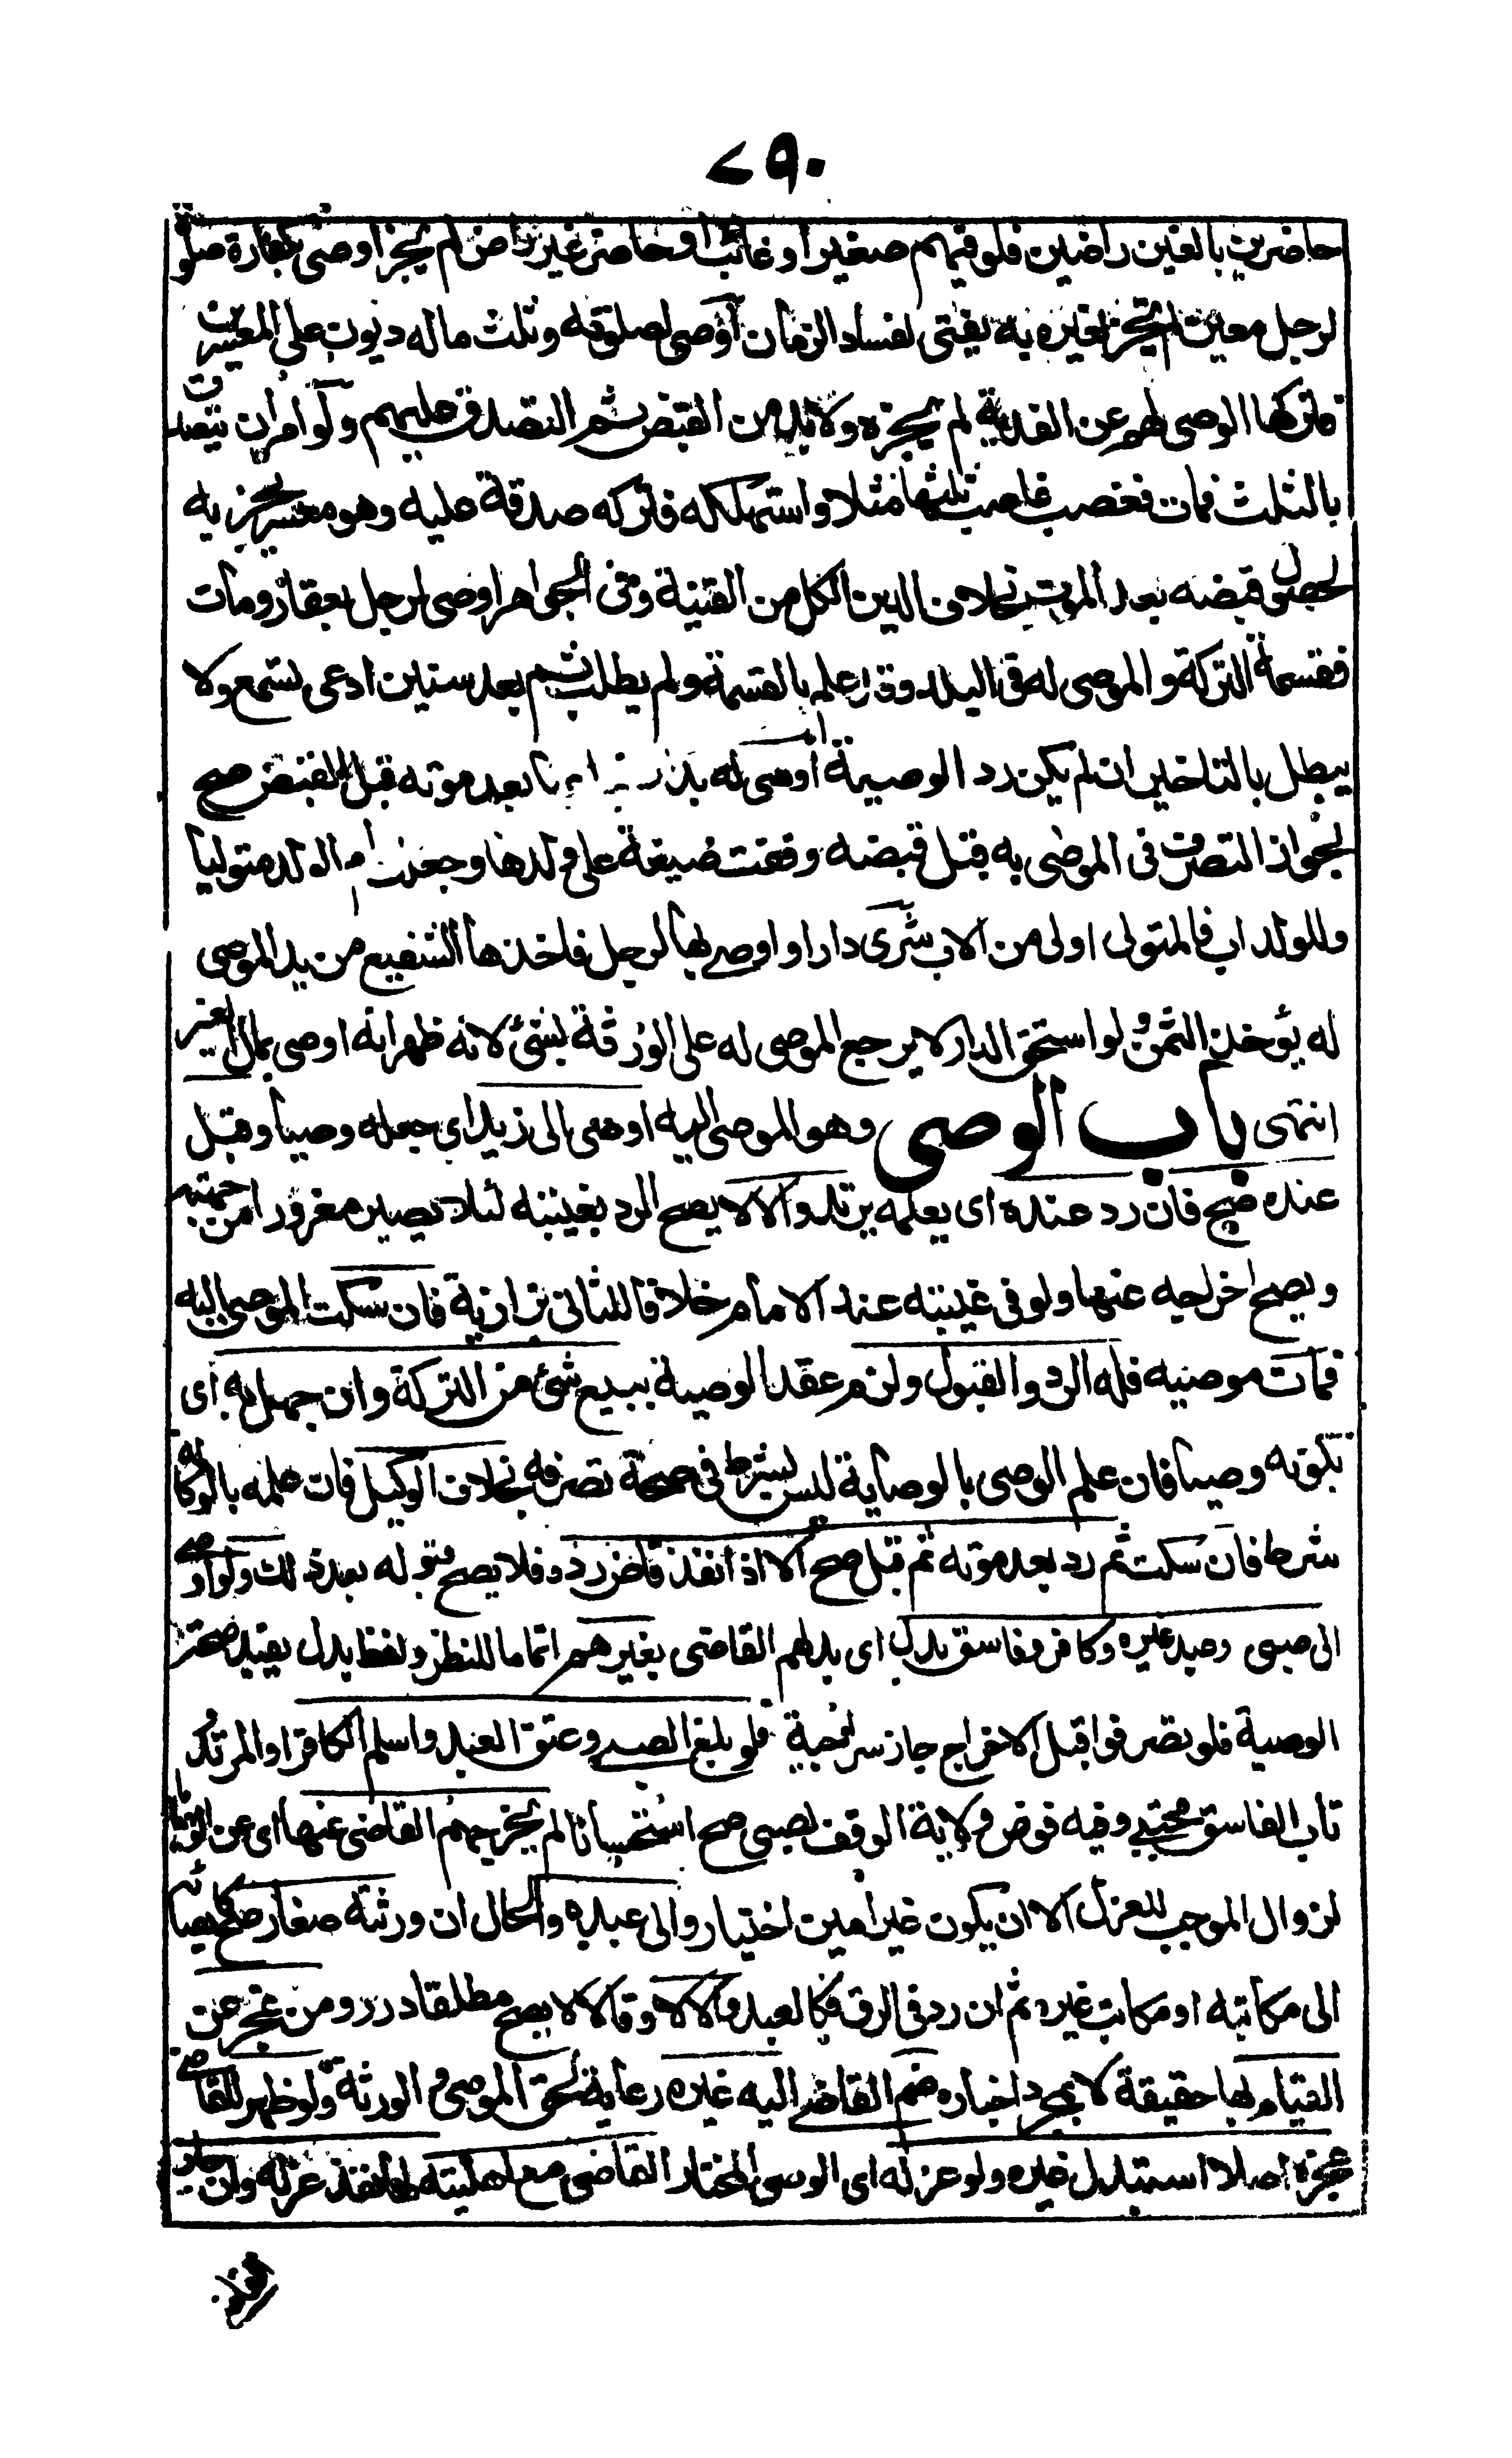 ٧٩٠
حاضرين بالغين راضين فلو فيهم صغير او غائب او حاضر غير راض لم يجز اوصى بكفارة صلوته
لرجل معين لم يجز لغيره به يفتى لفساد الزمان اوصى لصلوته وثلث ماله ديون على المعسرين
فتركها الوصى لهم عن الفدية لم يجزه ولا بد من القبض ثم التصدق عليهم ولو امر ان يتصدق
بالثلث فمات فغصب غاصب ثلثها مثلا واستهلكه فتركه صدقة عليه وهو معسر يجزيه
لحصول قبضه بعد الموت بخلاف الدين الكل من القنية وفى الجواهر اوصى لرجل بعقار ومات
فقسمة التركة والموصى له فى البلد وقد علم بالقسمة ولم يطلب ثم بعد سنين ادعى تسمع ولا
يبطل بالتاخير ان لم يكن رد الوصية اوصى له بعد موته قبل القبض صح
لجواز التصرف فى الموصى به قبل قبضه وقفت ضيعة على ولدها وجعلت الولد متوليا
وللولد اب فالمتولى اولى من الاب شرى دارا واوصى بها لرجل فاخذها الشفيع من يد الموصى
له يؤخذ الثمن ولو استحق الدار لا يرجع الموصى له على الورثة بشئ لانه ظهر انه اوصى بمال الغير
انتهى باب الوصى وهو الموصى اليه اوصى الى زيد اى جعله وصيا وقبل
عنده صح فان رد عنده اى بعلمه يرتد والا لا يصح الرد بغيبته لئلا يصير مغرورا من جهته
ويصح اخراجه عنها ولو فى غيبته عند الامام خلافا للثانى بزازية فان سكت الموصى اليه
فمات موصيه فله الرد والقبول ولزم عقد الوصية ببيع شئ من التركة وان جهل به اى
بكونه وصيا فان علم الوصى بالوصاية ليس بشرط فى صحة تصرفه بخلاف الوكيل فان علمه بالوكالة
شرط فان سكت ثم رد بعد موته ثم قبل صح الا اذا نفذ قاض رده فلا يصح قبوله بعد ذلك ولو اوصى
الى صبى وعبد غيره وكافر وفاسق بدل اى بدلهم القاضى بغيرهم اتماما للنظر ولفظ بدل يفيد صحة
الوصية فلو تصرفوا قبل الاخراج جاز سراجية فلو بلغ الصبى وعتق العبد واسلم الكافر او المرتد
تاب الفاسق مجتبى وفيه فوض ولاية الوقف لصبى صح استحسانا لم يخرجهم القاضى عنها اى عن الوصايا
لزوال الموجب للعزل الا ان يكون غير امين اختيار والى عبده والحال ان ورثته صغار صح كايصائه
الى مكاتبه او مكاتب غيره ثم ان رد فى الرق فكالعبد والا لا وقالا لا يصح مطلقا درر ومن عجز عن
القيام بها حقيقة لا بمجرد اخباره ضم القاضى اليه غيره رعاية لحق الموصى والورثة ولو ظهر للقاضى
عجزه اصلا استبدل غيره ولو عزله اى الوصى المختار القاضى مع اهليته لها نفذ عزله وان جار